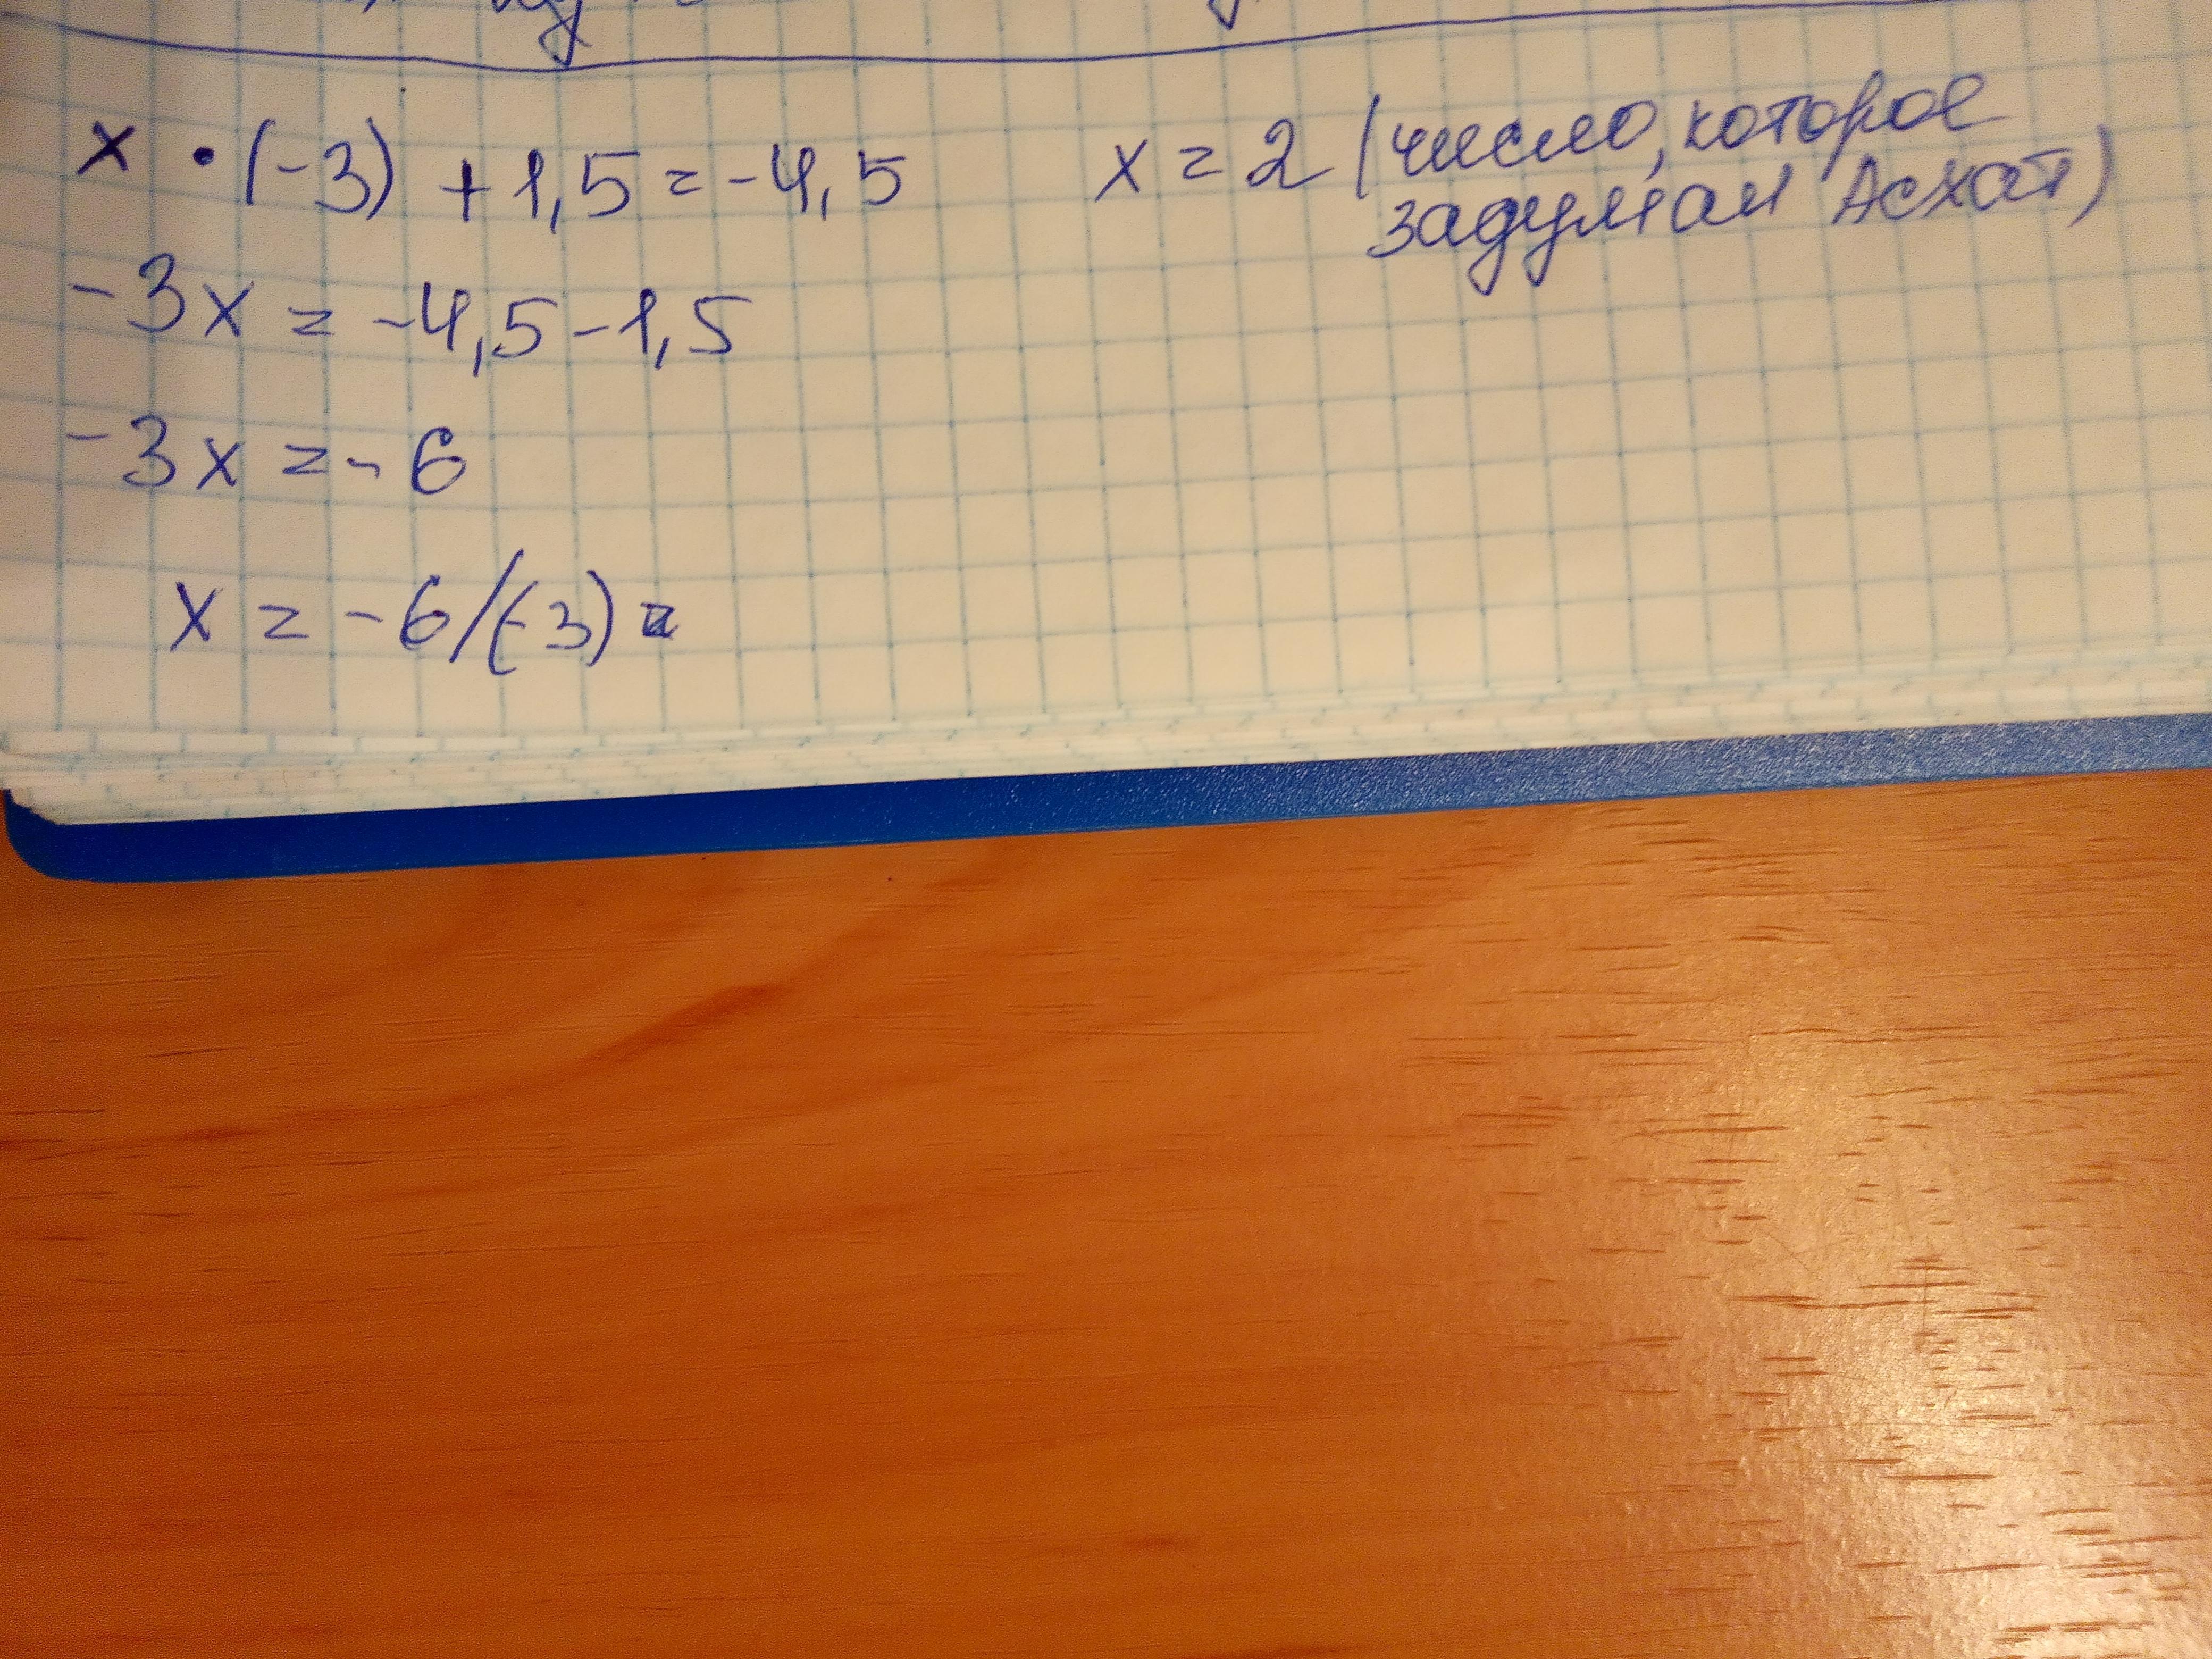 x · (-3) + 1,5 = -4,5
-3x = -4,5 - 1,5
-3x = -6
x = -6/(-3) =
x = 2 (число, которое
задумал Асхат)